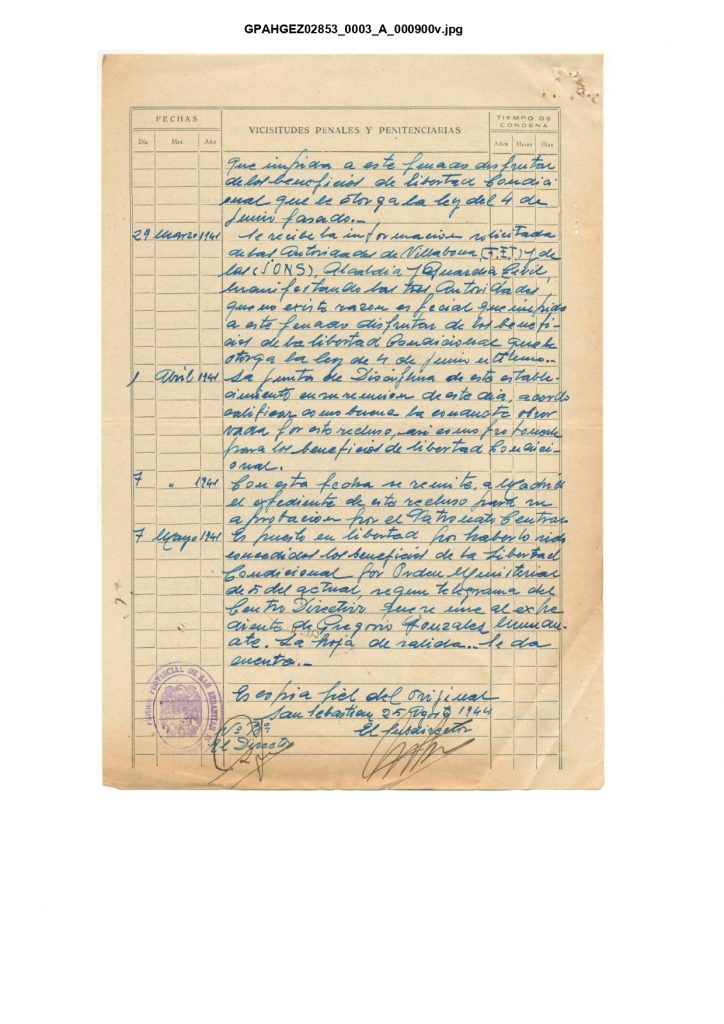 GPAHGEZ02853_0003_A_000900v.jpg
FECHAS
VICISITUDES PENALES Y PENITENCIARIAS
TIEMPO DE CONDENA
Día Mes Año
Años Meses Días
que impida a este penado disfrutar
de los beneficios de libertad Condici
onal que le otorga la ley del 4 de
Junio pasado.-
29 Marzo 1941 Se recibe la informacion solicitada
de las Autoridades de Villabona (F.E.T) y de
las (JONS), Alcaldia y Guardia Civil,
manifestando las tres Autoridades
que no existe razon especial que impida
a este penado disfrutar de los benefi-
cios de la libertad Condicional que le
otorga la ley de 4 de junio ultimo.-
1 Abril 1941 La Junta de Disciplina de este estable-
cimiento en su reunion de este dia, acordo
calificar como buena la conducta obser
vada por este recluso, asi como proponerle
para los beneficios de libertad Condici-
onal.
7 " 1941 Con esta fecha se remite, a Madrid
el expediente de este recluso para su
aprobacion por el Patronato Central
7 Mayo 1941 Es puesto en libertad por haberle sido
concedidos los beneficios de la Libertad
Condicional por Orden Ministerial
de 5 del actual, segun telegrama del
Centro Directivo que se une al expe
diente de Gregorio Gonzales
La hoja de salida.. Se da
cuenta.-
PRISIÓN PROVINCIAL DE SAN SEBASTIAN
Es copia fiel del original
San Sebastian 25 Agosto 1944
Vº Bº
El Director
El Subdirector